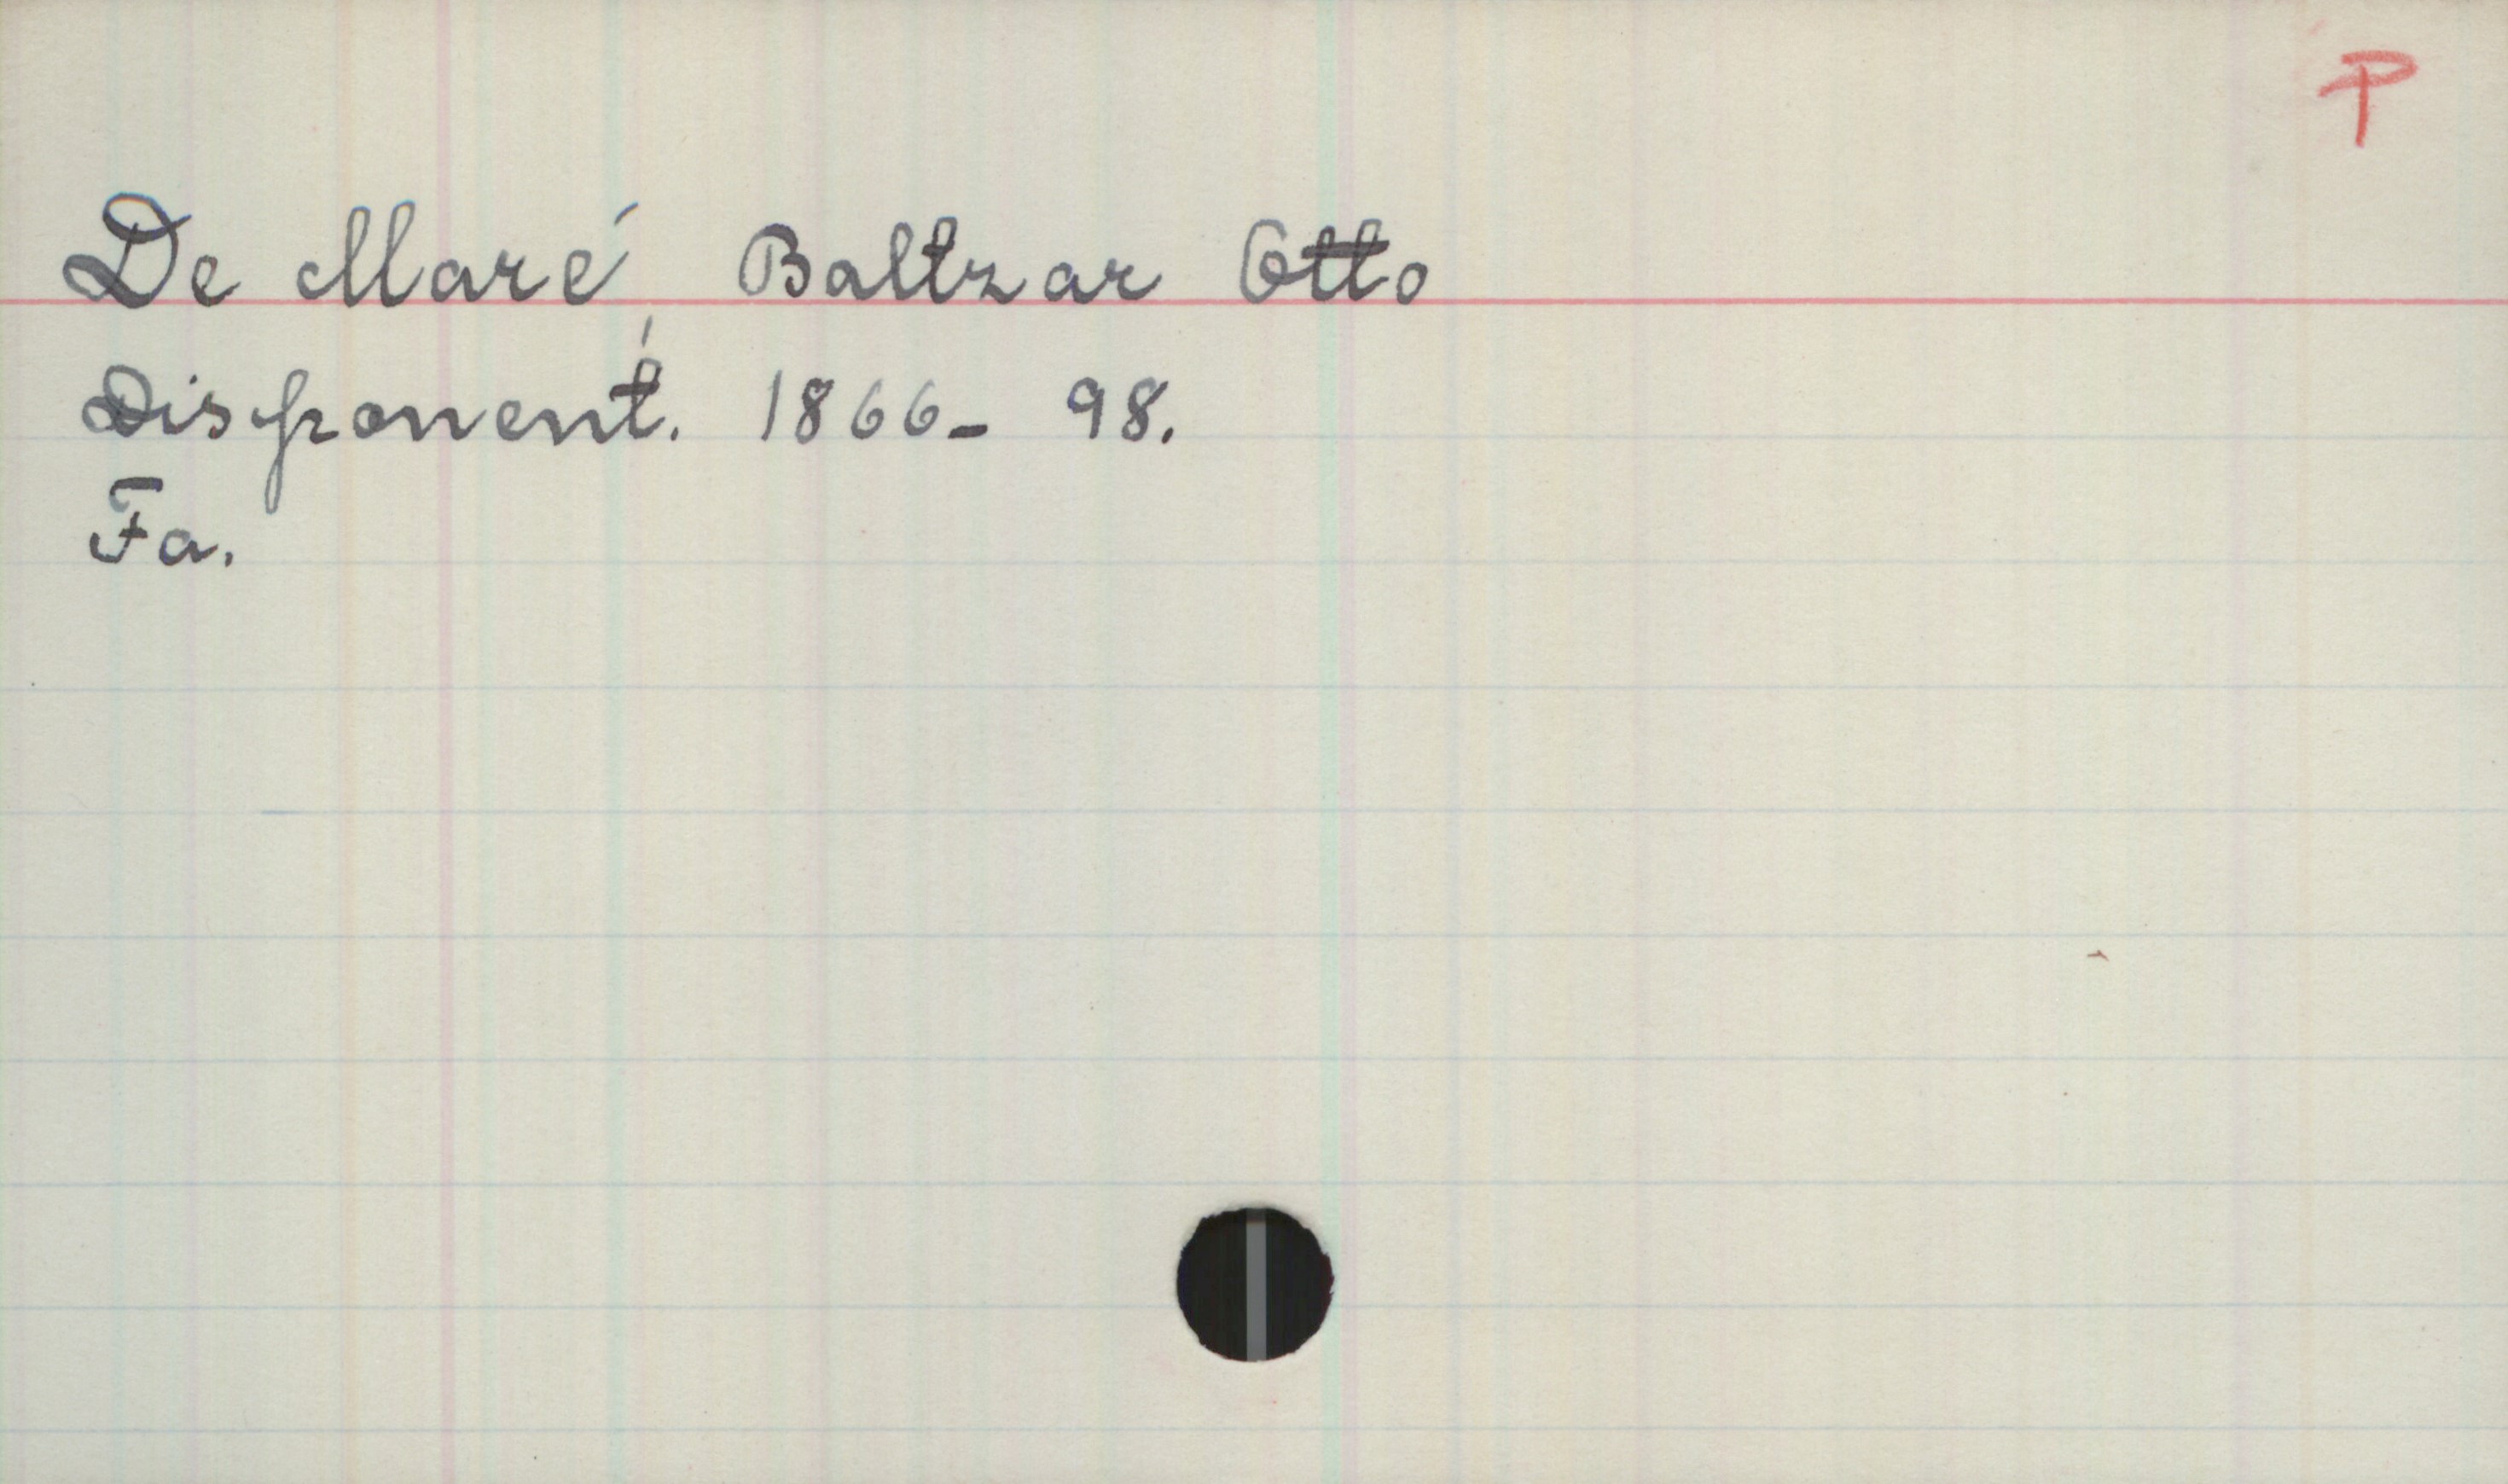 P
De Maré Baltzar Otto
Disponent. 1866- 98.
Fa.